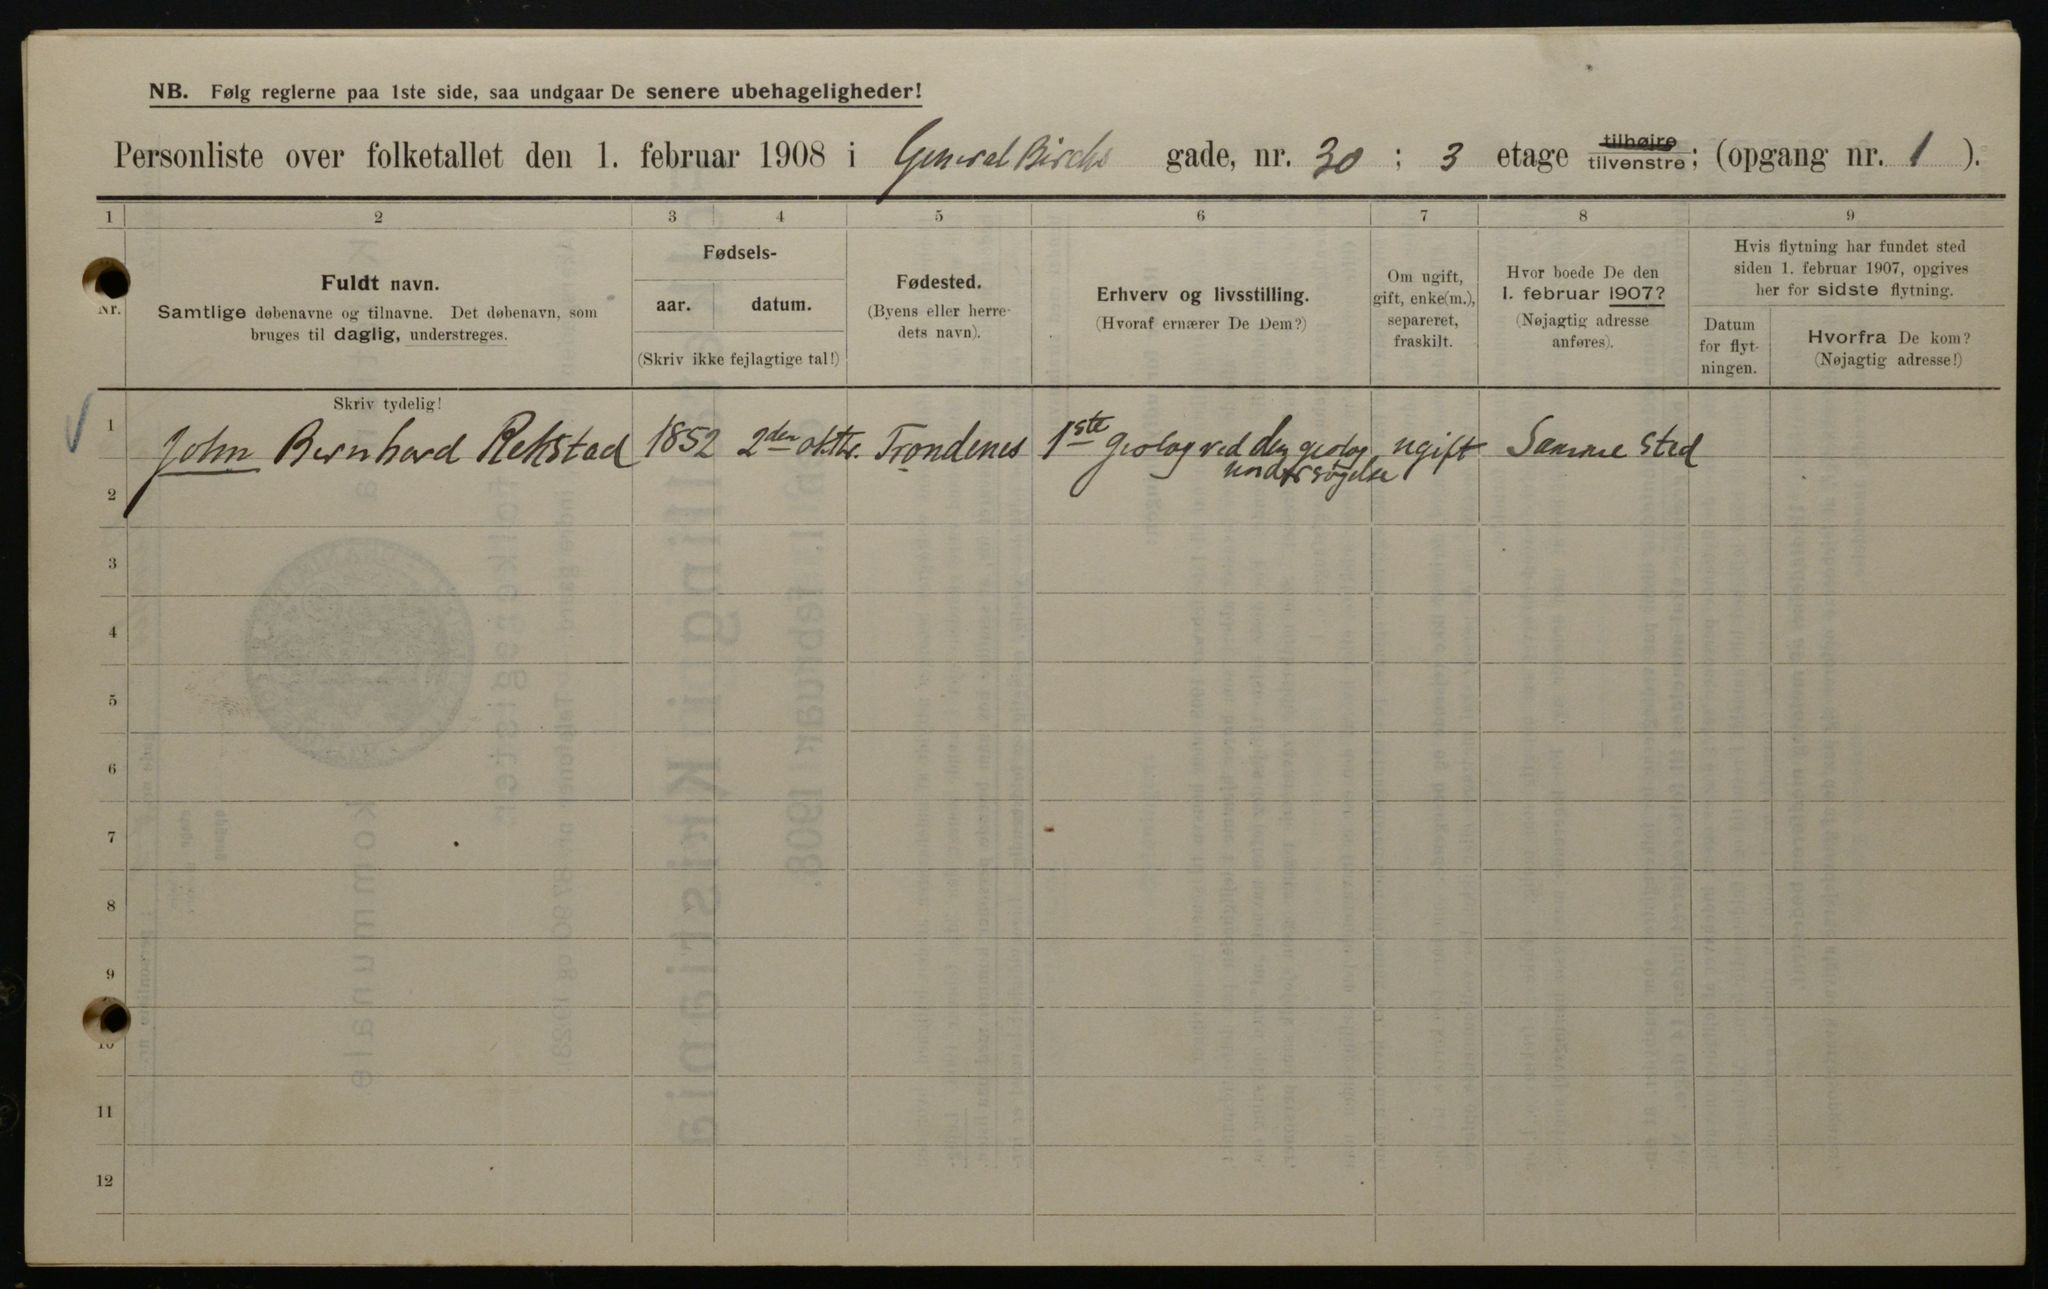 NB. Følg reglerne paa 1ste side, saa undgaar De senere ubehageligheder!
Personliste over folketallet den 1. februar 1908 i General Birchs gade, nr. 30 ; 3 etage tilhøjre tilvenstre ; (opgang nr. 1 ).
1 2 3 4 5 6 7 8 9
Nr.
Fuldt navn.
Samtlige døbenavne og tilnavne. Det døbenavn, som
bruges til daglig, understreges.
Skriv tydelig!
Fødsels-
aar. datum.
(Skriv ikke fejlagtige tal!)
Fødested.
(Byens eller herre-
dets navn).
Erhverv og livsstilling.
(Hvoraf ernærer De Dem?)
Om ugift,
gift, enke(m.),
separeret,
fraskilt.
Hvor boede De den
1. februar 1907?
(Nøjagtig adresse
anføres).
Hvis flytning har fundet sted
siden 1. februar 1907, opgives
her for sidste flytning.
Datum
for flyt-
ningen.
Hvorfra De kom?
(Nøjagtig adresse!)
1 John Bernhard Rekstad 1852 2den oktbr. Trondenes 1ste geolog ved den geolog. ugift Samme sted
undersøgelse
2
3
4
5
6
7
8
9
10
11
12